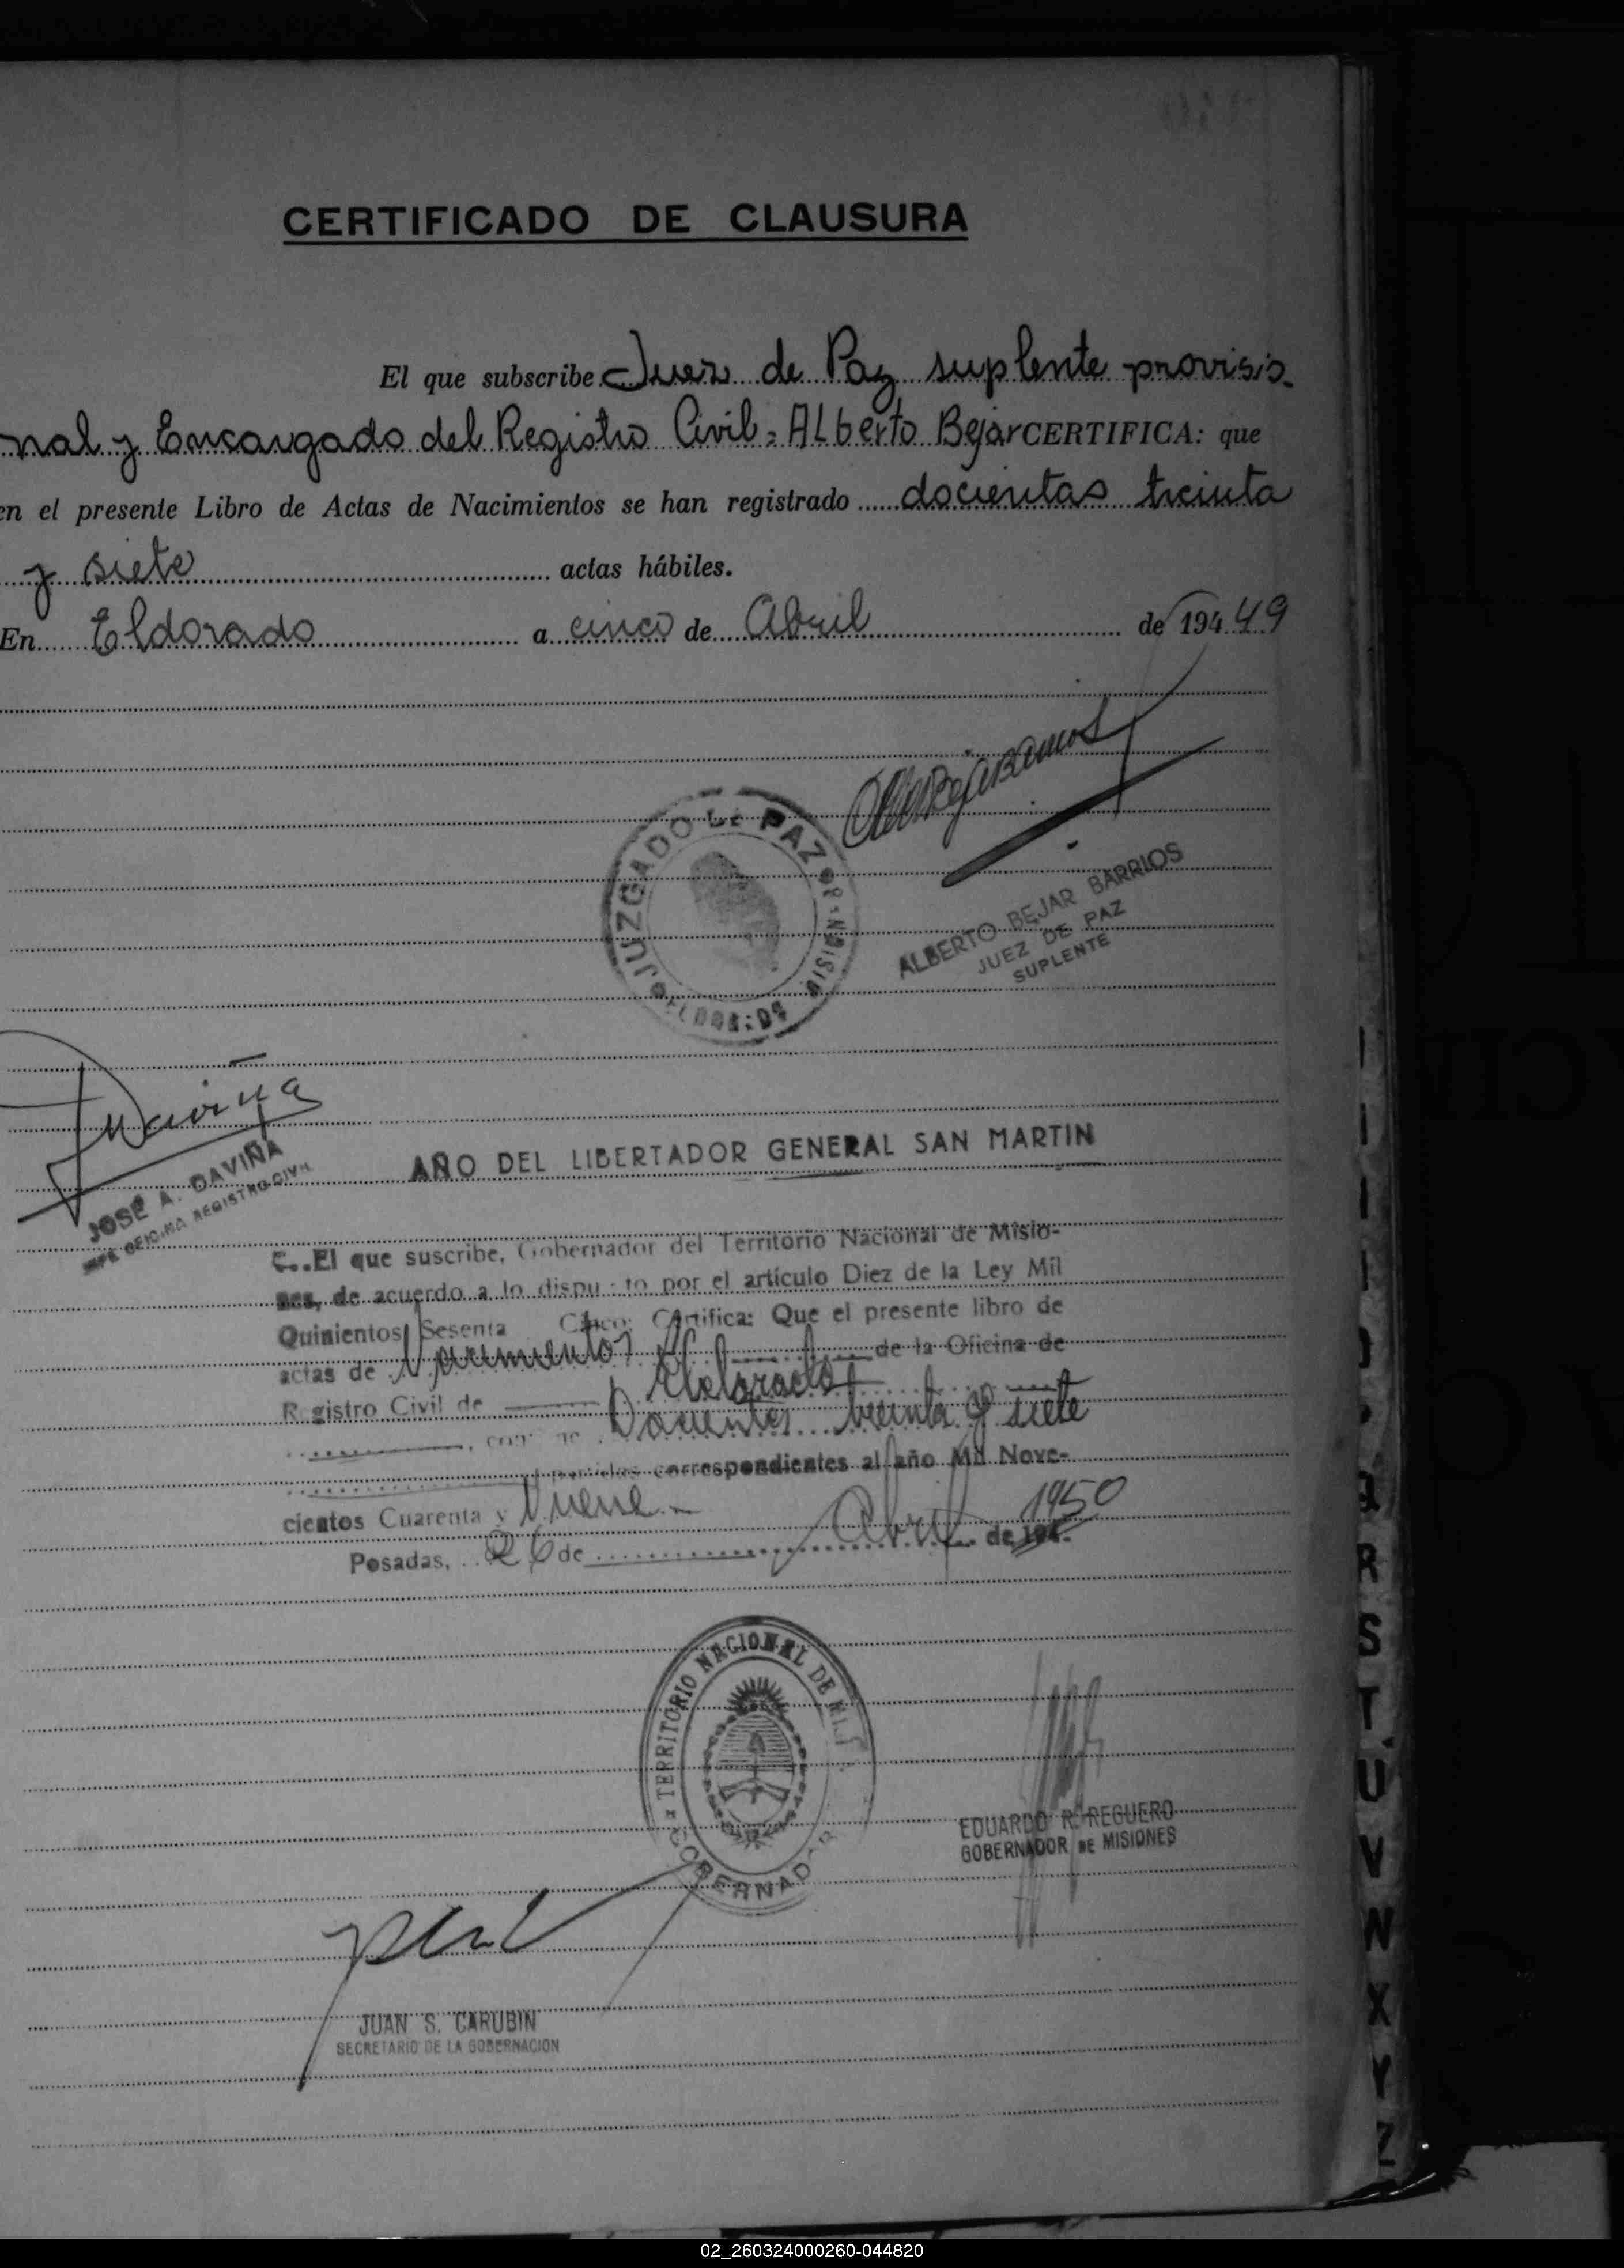 CERTIFICADO DE CLAUSURA
El que subscribe Juez de Paz suplente provisio-
nal y Encargado del Registro Civil, Alberto Bejar CERTIFICA: que
en el presente Libro de Actas de Nacimientos se han registrado docientas treinta
y siete actas hábiles.
En Eldorado a cinco de Abril de 194 49
JUZGADO DE PAZ
ALBERTO BEJAR BARRIOS
JUEZ DE PAZ
SUPLENTE
Daviña
JOSE A. DAVIÑA
OFICINA REGISTRO CIVIL
AÑO DEL LIBERTADOR GENERAL SAN MARTIN
El que suscribe, Gobernador del Territorio Nacional de Misio-
nes, de acuerdo a lo dispuesto por el artículo Diez de la Ley Mil
Quinientos Sesenta Cinco: Certifica: Que el presente libro de
actas de Nacimientos de la Oficina de
Registro Civil de Eldorado
Docientos treinta y siete
correspondientes al año Mil Nove-
cientos Cuarenta y Nueve
Posadas, 26 de Abril de 194 1950
TERRITORIO NACIONAL DE MIS
GOBERNADOR
EDUARDO R. REGUERO
GOBERNADOR DE MISIONES
JUAN S. CARUBIN
SECRETARIO DE LA GOBERNACION
R
S
T
U
V
W
X
Y
Z
02_260324000260-044820